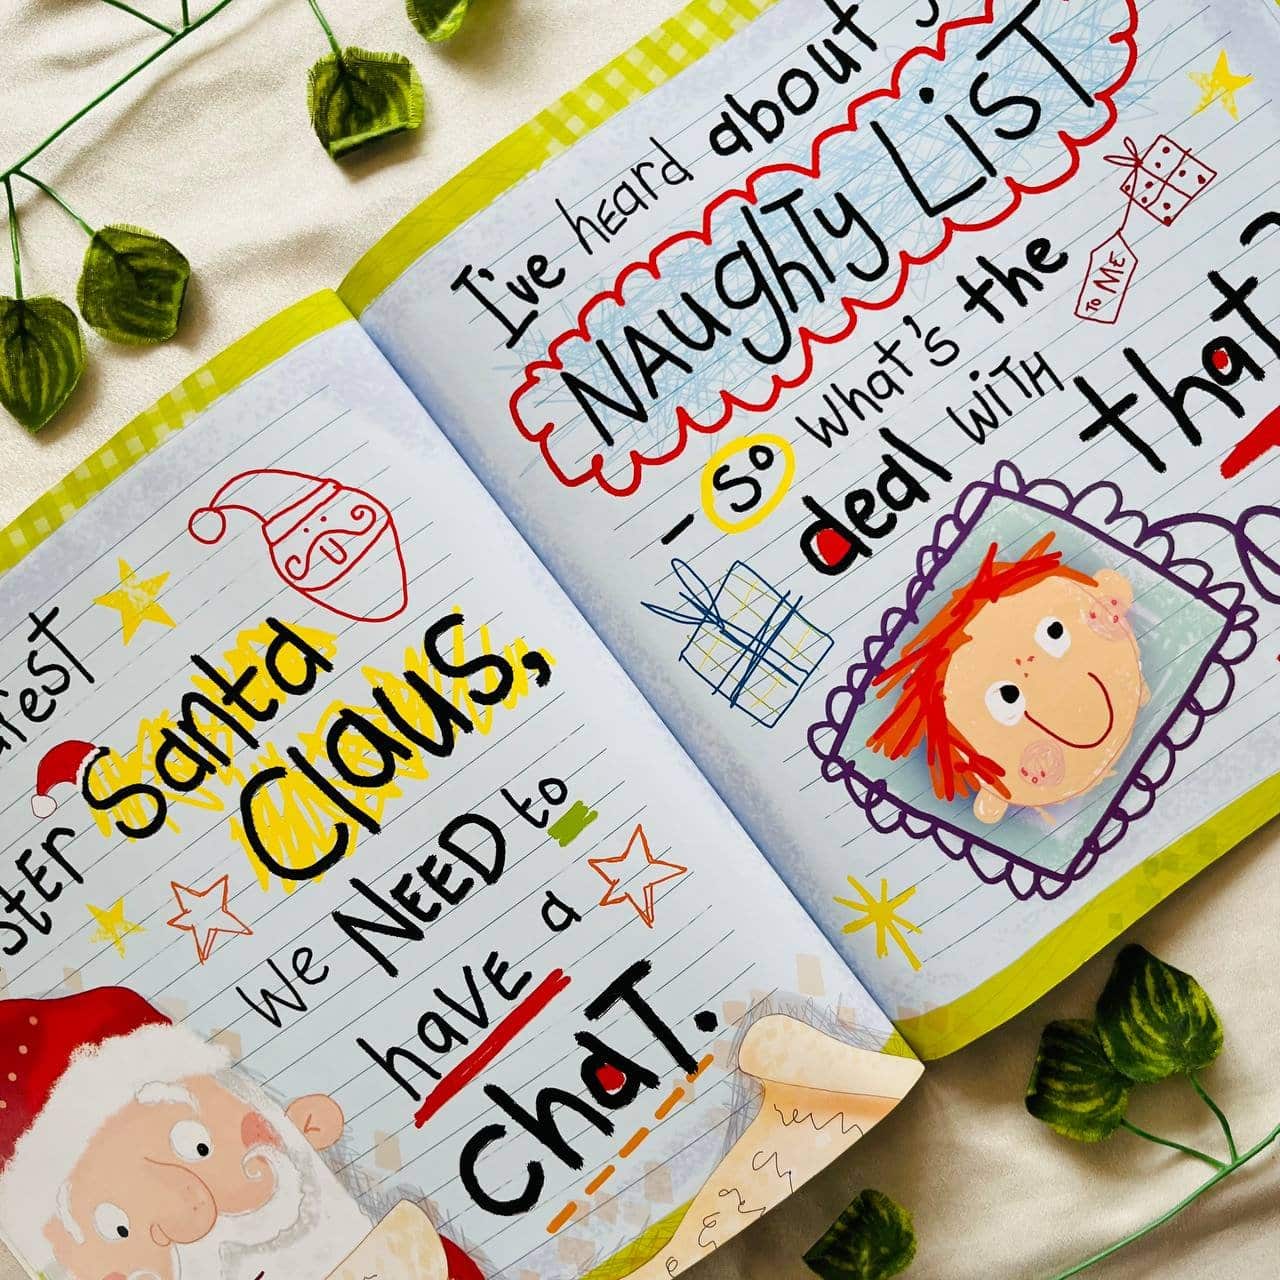 Santa
Claus,
We NEED to
have a
chat.
I've heard about
NAughTy LisT
- So what's the
deal with that?
To ME